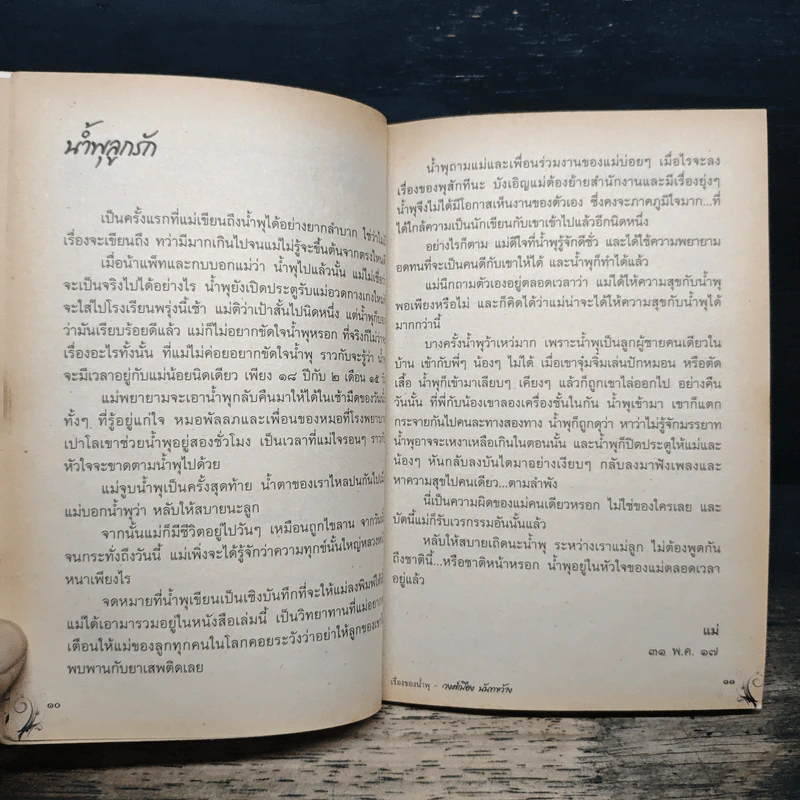 น้ำพุลูกรัก
เป็นครั้งแรกที่แม่เขียนถึงน้ำพุได้อย่างยากลำบาก ใช่ว่าไม่มี
เรื่องจะเขียนถึง ทว่ามีมากเกินไปจนแม่ไม่รู้จะขึ้นต้นจากตรงไหนดี
เมื่อน้าแพ็ทและกบบอกแม่ว่า น้ำพุไปแล้วนั้น แม่ไม่เชื่อ
จะเป็นจริงไปได้อย่างไร น้ำพุยังเปิดประตูรับแม่อวดกางเกงใหม่
จะใส่ไปโรงเรียนพรุ่งนี้เช้า แม่ติว่าเป้าสั้นไปนิดหนึ่ง แต่น้ำพุก็บอก
ว่ามันเรียบร้อยดีแล้ว แม่ก็ไม่อยากขัดใจน้ำพุหรอก ที่จริงก็ไม่ว่า
เรื่องอะไรทั้งนั้น ที่แม่ไม่ค่อยอยากขัดใจน้ำพุ ราวกับจะรู้ว่า
จะมีเวลาอยู่กับแม่น้อยนิดเดียว เพียง ๑๘ ปีกับ ๒ เดือน ๑๕ วัน
แม่พยายามจะเอาน้ำพุกลับคืนมาให้ได้ในเช้ามืดของวัน
ทั้งๆ ที่รู้อยู่แก่ใจ หมอพัลลภและเพื่อนของหมอที่โรงพยาบาล
เปาโลเขาช่วยน้ำพุอยู่สองชั่วโมง เป็นเวลาที่แม่ใจรอนๆ ราวกับ
หัวใจจะขาดตามน้ำพุไปด้วย
แม่จูบน้ำพุเป็นครั้งสุดท้าย น้ำตาของเราไหลปนกันไป
แม่บอกน้ำพุว่า หลับให้สบายนะลูก
จากนั้นแม่ก็มีชีวิตอยู่ไปวันๆ เหมือนถูกไขลาน จากวันนั้น
จนกระทั่งถึงวันนี้ แม่เพิ่งจะได้รู้จักว่าความทุกข์นั้นใหญ่หลวง
หนาเพียงไร
จดหมายที่น้ำพุเขียนเป็นเชิงบันทึกที่จะให้แม่ลงพิมพ์ให้
แม่ได้เอามารวมอยู่ในหนังสือเล่มนี้ เป็นวิทยาทานที่แม่อยาก
เตือนให้แม่ของลูกทุกคนในโลกคอยระวังว่าอย่าให้ลูกของเขา
พบพานกับยาเสพติดเลย
๑๐
น้ำพุถามแม่และเพื่อนร่วมงานของแม่บ่อยๆ เมื่อไรจะลง
เรื่องของพุสักทีนะ บังเอิญแม่ต้องย้ายสำนักงานและมีเรื่องยุ่งๆ
น้ำพุจึงไม่ได้มีโอกาสเห็นงานของตัวเอง ซึ่งคงจะภาคภูมิใจมาก...ที่
ได้ใกล้ความเป็นนักเขียนกับเขาเข้าไปแล้วอีกนิดหนึ่ง
อย่างไรก็ตาม แม่ดีใจที่น้ำพุรู้จักดีชั่ว และได้ใช้ความพยายาม
อดทนที่จะเป็นคนดีกับเขาให้ได้ และน้ำพุก็ทำได้แล้ว
แม่นึกถามตัวเองอยู่ตลอดเวลาว่า แม่ได้ให้ความสุขกับน้ำพุ
พอเพียงหรือไม่ และก็คิดได้ว่าแม่น่าจะได้ให้ความสุขกับน้ำพุได้
มากกว่านี้
บางครั้งน้ำพุว้าเหว่มาก เพราะน้ำพุเป็นลูกผู้ชายคนเดียวใน
บ้าน เข้ากับพี่ๆ น้องๆ ไม่ได้ เมื่อเขาจุ๋มจิ๋มเล่นปักหมอน หรือตัด
เสื้อ น้ำพุก็เข้ามาเลียบๆ เคียงๆ แล้วก็ถูกเขาไล่ออกไป อย่างคืน
วันนั้น ที่พี่กับน้องเขาลองเครื่องชั้นในกัน น้ำพุเข้ามา เขาก็แตก
กระจายกันไปคนละทางสองทาง น้ำพุก็ถูกดุว่า หาว่าไม่รู้จักมรรยาท
น้ำพุอาจจะเหงาเหลือเกินในตอนนั้น และน้ำพุก็ปิดประตูให้แม่และ
น้องๆ หันกลับลงบันไดมาอย่างเงียบๆ กลับลงมาฟังเพลงและ
หาความสุขไปคนเดียว...ตามลำพัง
นี่เป็นความผิดของแม่คนเดียวหรอก ไม่ใช่ของใครเลย และ
บัดนี้แม่ก็รับเวรกรรมอันนั้นแล้ว
หลับให้สบายเถิดนะน้ำพุ ระหว่างเราแม่ลูก ไม่ต้องพูดกัน
ถึงชาตินี้...หรือชาติหน้าหรอก น้ำพุอยู่ในหัวใจของแม่ตลอดเวลา
อยู่แล้ว
แม่
๓๑ พ.ค. ๑๗
เรื่องของน้ำพุ - วงศ์เมือง นันทขว้าง
๑๑